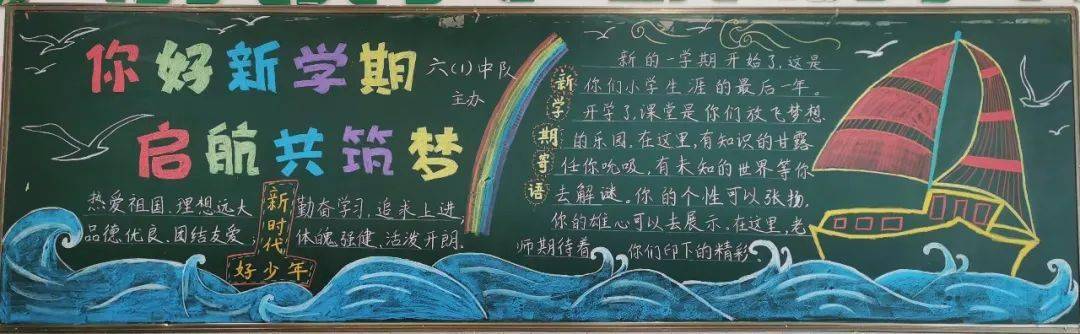 你好新学期
六(1)中队
主办
启航共筑梦
热爱祖国、理想远大
品德优良、团结友爱、
新时代
好少年
勤奋学习、追求上进、
体魄强健、活泼开朗.
新学期寄语
新的一学期开始了,这是
你们小学生涯的最后一年。
开学了,课堂是你们放飞梦想
的乐园,在这里,有知识的甘露
任你吮吸,有未知的世界等你
去解谜。你的个性可以张扬,
你的雄心可以去展示。在这里,老
师期待着 你们印下的精彩.